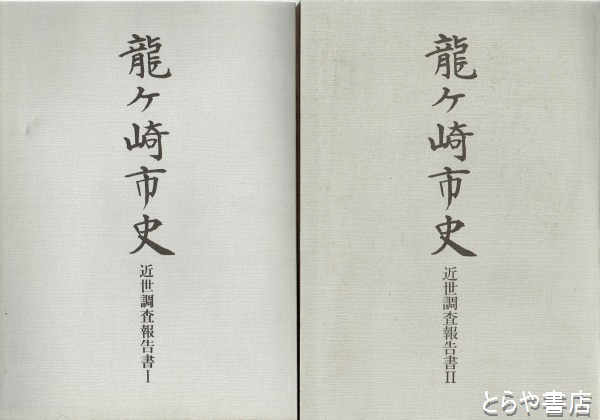 龍ヶ崎市史
近世調査報告書Ⅰ
龍ヶ崎市史
近世調査報告書Ⅱ
とらや書店